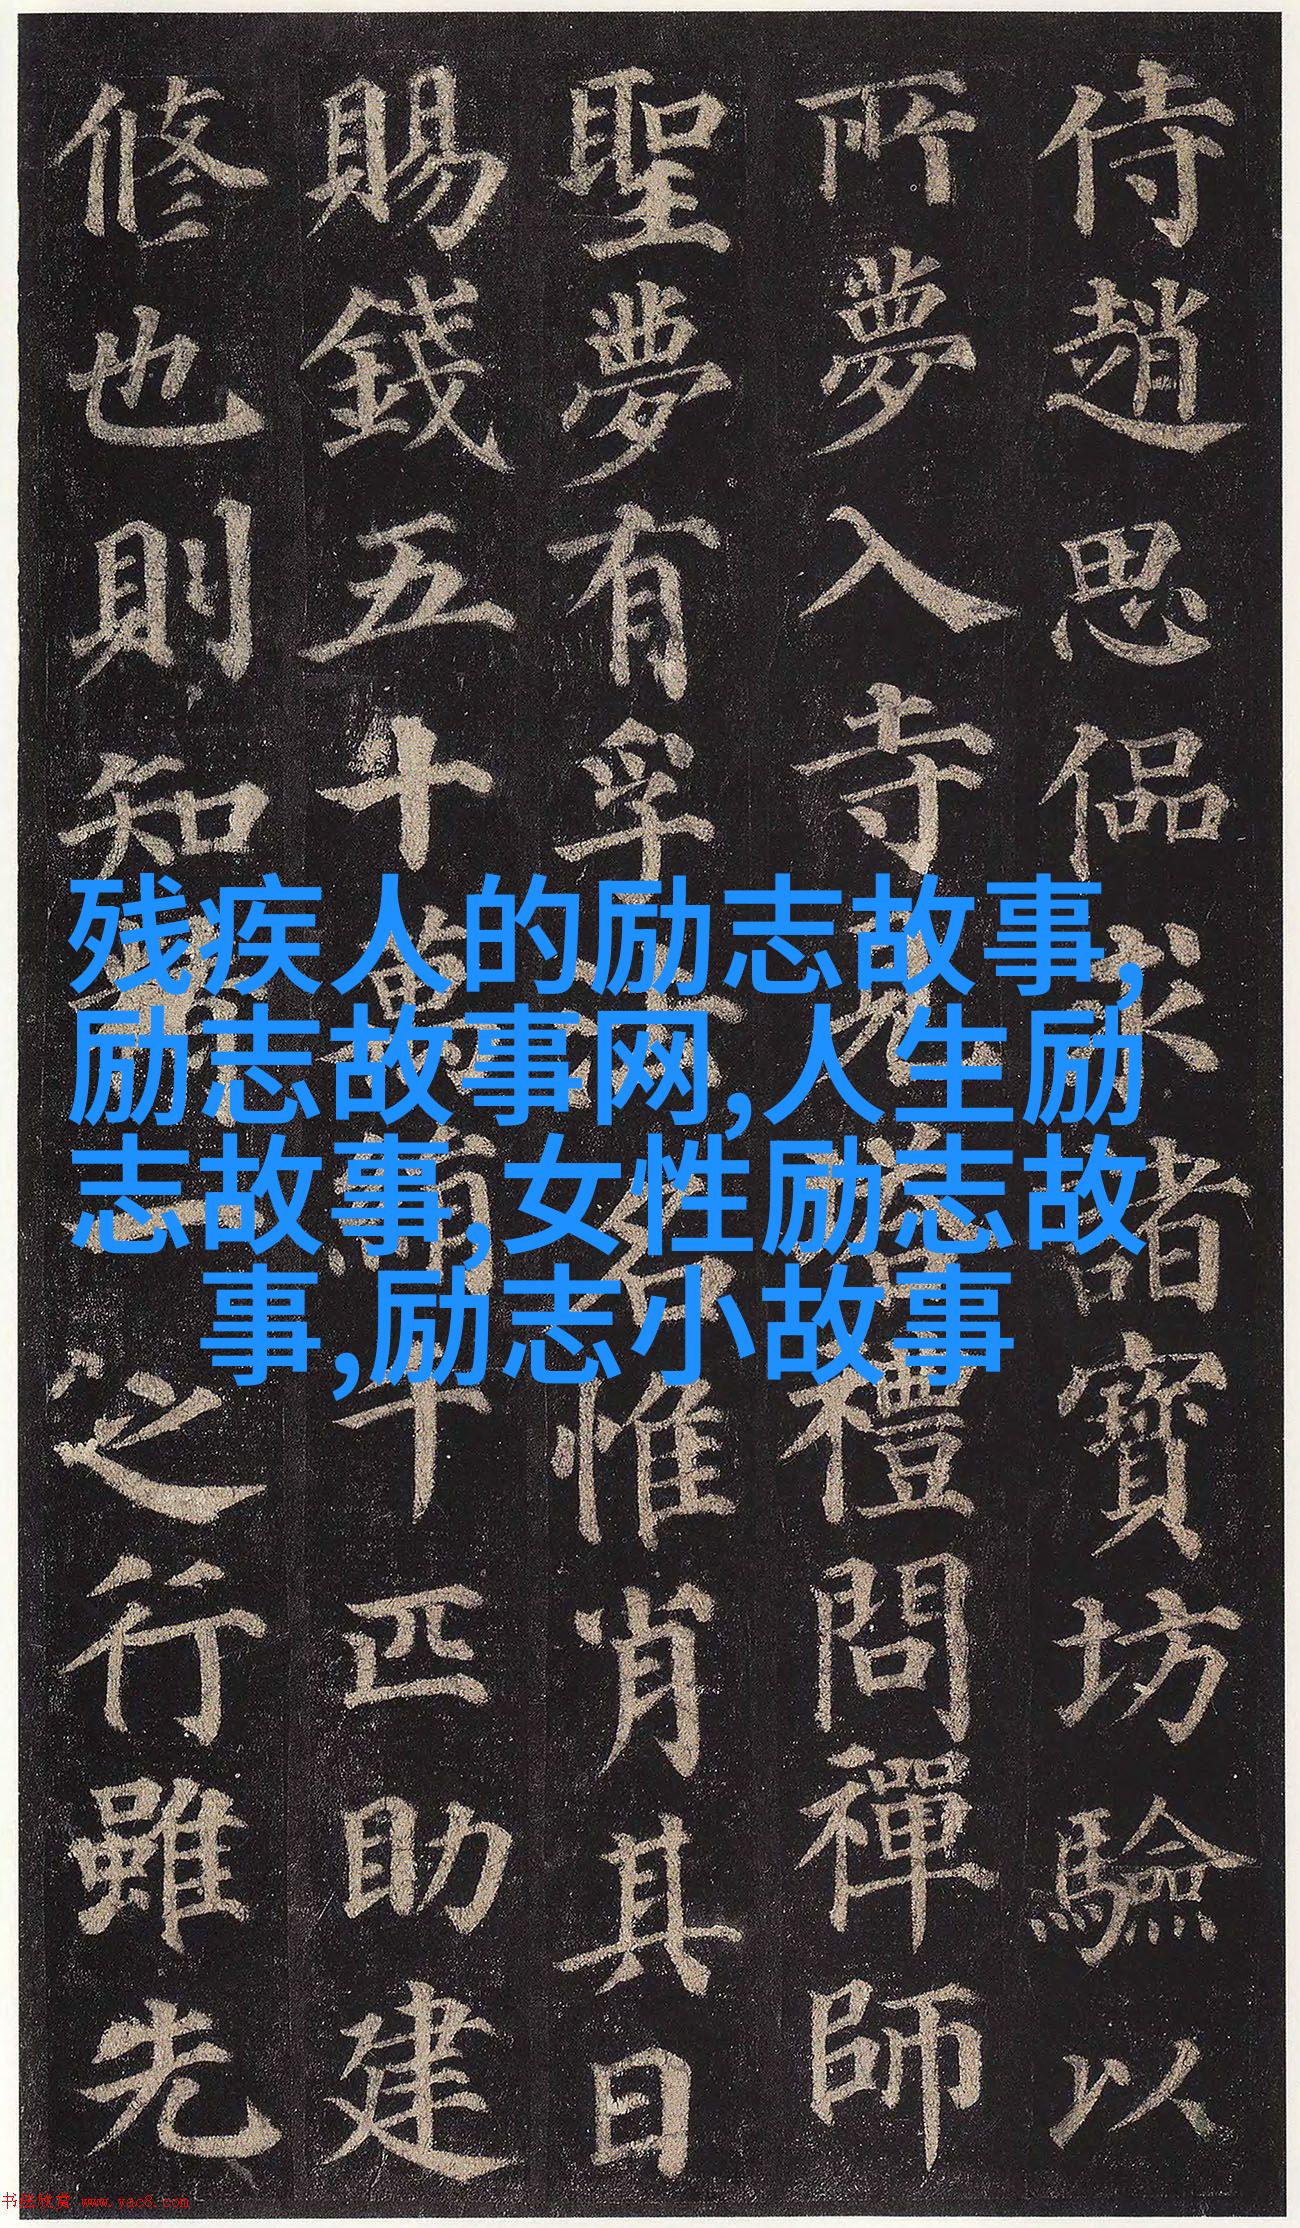 侍趙思偘求諸寶坊驗以
所夢入寺塔禮問禪師
聖夢有孚名惟肖其日
賜錢五十萬絹千匹助建
修也則知一之行雖先
残疾人的励志故事,
励志故事网,人生励
志故事,女性励志故
事,励志小故事
书法欣赏 www.yac8.com